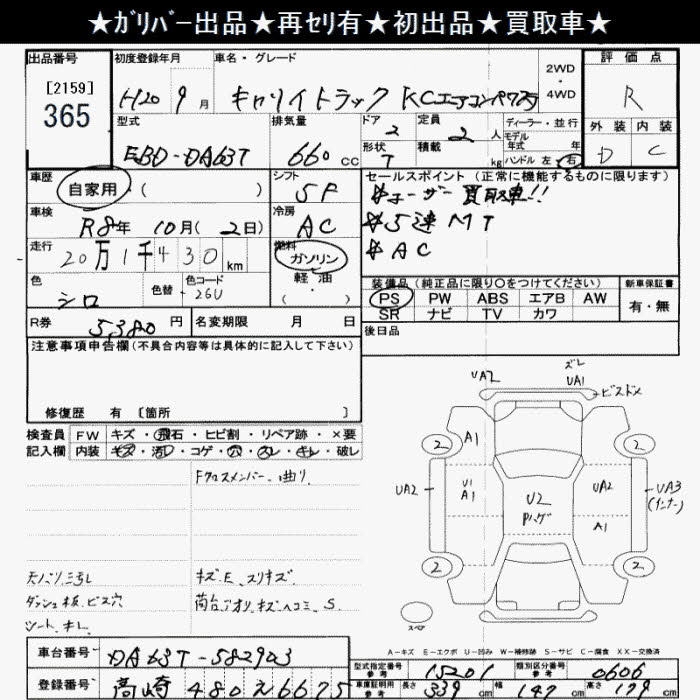 ★ｶﾞﾘﾊﾞｰ出品★再ｾﾘ有★初出品★買取車★
出品番号
[2159]
365
初度登録年月
H20 9月
車名・グレード
キャリイトラック KCエアコンパワステ
2WD・4WD
評価点
R
外装 内装
D C
型式
EBD-DA63T
排気量
660 CC
ドア 2
形状 T
定員 2人
積載 kg
ディーラー・並行
モデル年式 年式
ハンドル 左・右
車歴
自家用・( )
シフト
5F
セールスポイント (正常に機能するものに限ります)
※ユーザー買取車!!
※5速MT
※AC
車検
R8年 10月(2日)
冷房
AC
走行
20万1千430km
燃料
ガソリン
軽・油
( ・ )
色
シロ
色替
色コード
26U
装備品(純正品に限り○をつけてください)
PS PW ABS エアB AW
SR ナビ TV カワ
新車保証書
有・無
R券 5,380円
名変期限 月 日
後日品
注意事項申告欄(不具合内容等は具体的に記入して下さい)
修復歴 有 [箇所 ]
検査員記入欄
FW キズ・飛石・ヒビ割・リペア跡・×要
内装 キズ・汚レ・コゲ・穴・スレ・キレ・破レ
Fクロスメンバー曲り
キズ.E.スリキズ
荷台アオリ.キズヘコミ.S
ダッシュ板.ビス穴
シート.キレ
UA2
ズレ
UA1
ビスドメ
2
A1
2
UA2
U1
A1
U2
Pハゲ
UA2
A1
UA3
(インナー)
2
2
スペア
A-キズ E-エクボ U-凹み W-補修跡 S-サビ C-腐食 XX-交換済
車台番号 DA63T-582903
登録番号 高崎 480え6675
型式指定番号 参考 15201
類別区分番号 参考 0606
車庫証明用 参考 長さ 339cm 幅 147cm 高さ